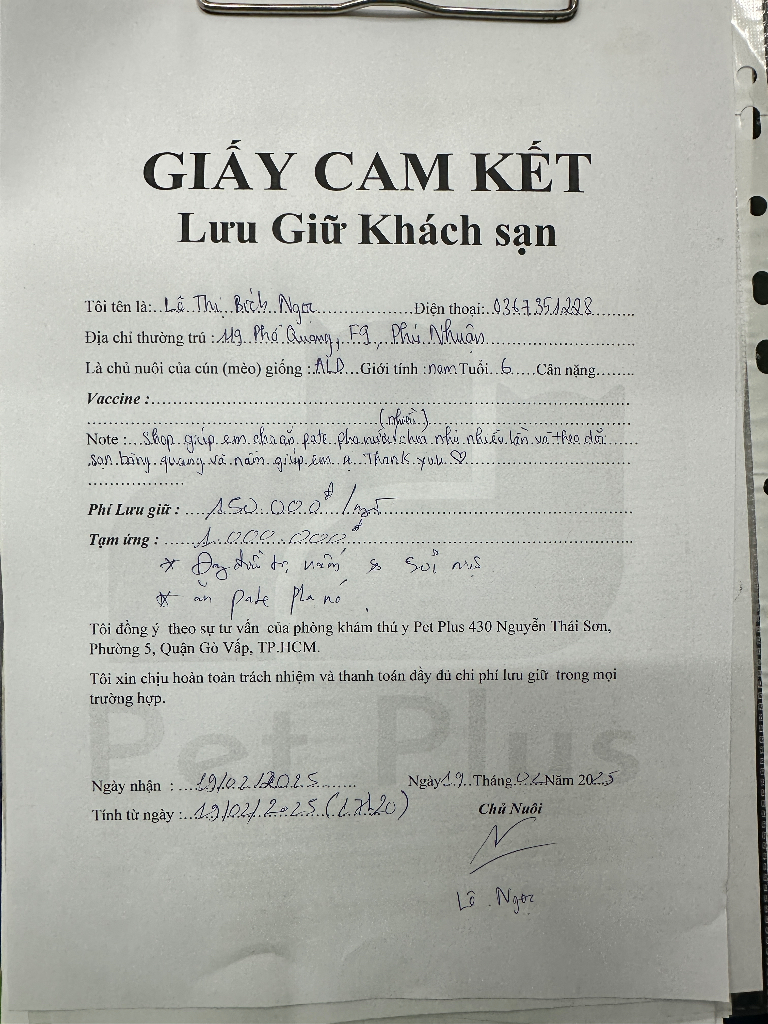 GIẤY CAM KẾT
Lưu Giữ Khách sạn
Tôi tên là:..Lê Thị Bích Ngọc..................Điện thoại:..0367351228........
Địa chỉ thường trú :119 Phổ Quang, F9, Phú Nhuận
Là chủ nuôi của cún (mèo) giống :.ALD...Giới tính :nam Tuổi..6.....Cân nặng........
Vaccine :.........................................................................
(nhiều)
Note :...Shop giúp em cho ăn pate pha nước chia nhỏ nhiều lần và theo dõi
sạn bàng quang và nấm giúp em ạ. Thank you ♡
..................
Phí Lưu giữ : ....150.000đ/ngày
Tạm ứng : .....1.000.000đ
* Đang điều trị nấm sỏi
* ăn pate pha
Tôi đồng ý theo sự tư vấn của phòng khám thú y Pet Plus 430 Nguyễn Thái Sơn,
Phường 5, Quận Gò Vấp, TP.HCM.
Tôi xin chịu hoàn toàn trách nhiệm và thanh toán đầy đủ chi phí lưu giữ trong mọi
trường hợp.
Pet Plus
Ngày nhận : ...19/02/2025........ Ngày19..Tháng.02.Năm 2025
Tính từ ngày :..19/02/2025 (17h20)
Chủ Nuôi
Lê Ngọc